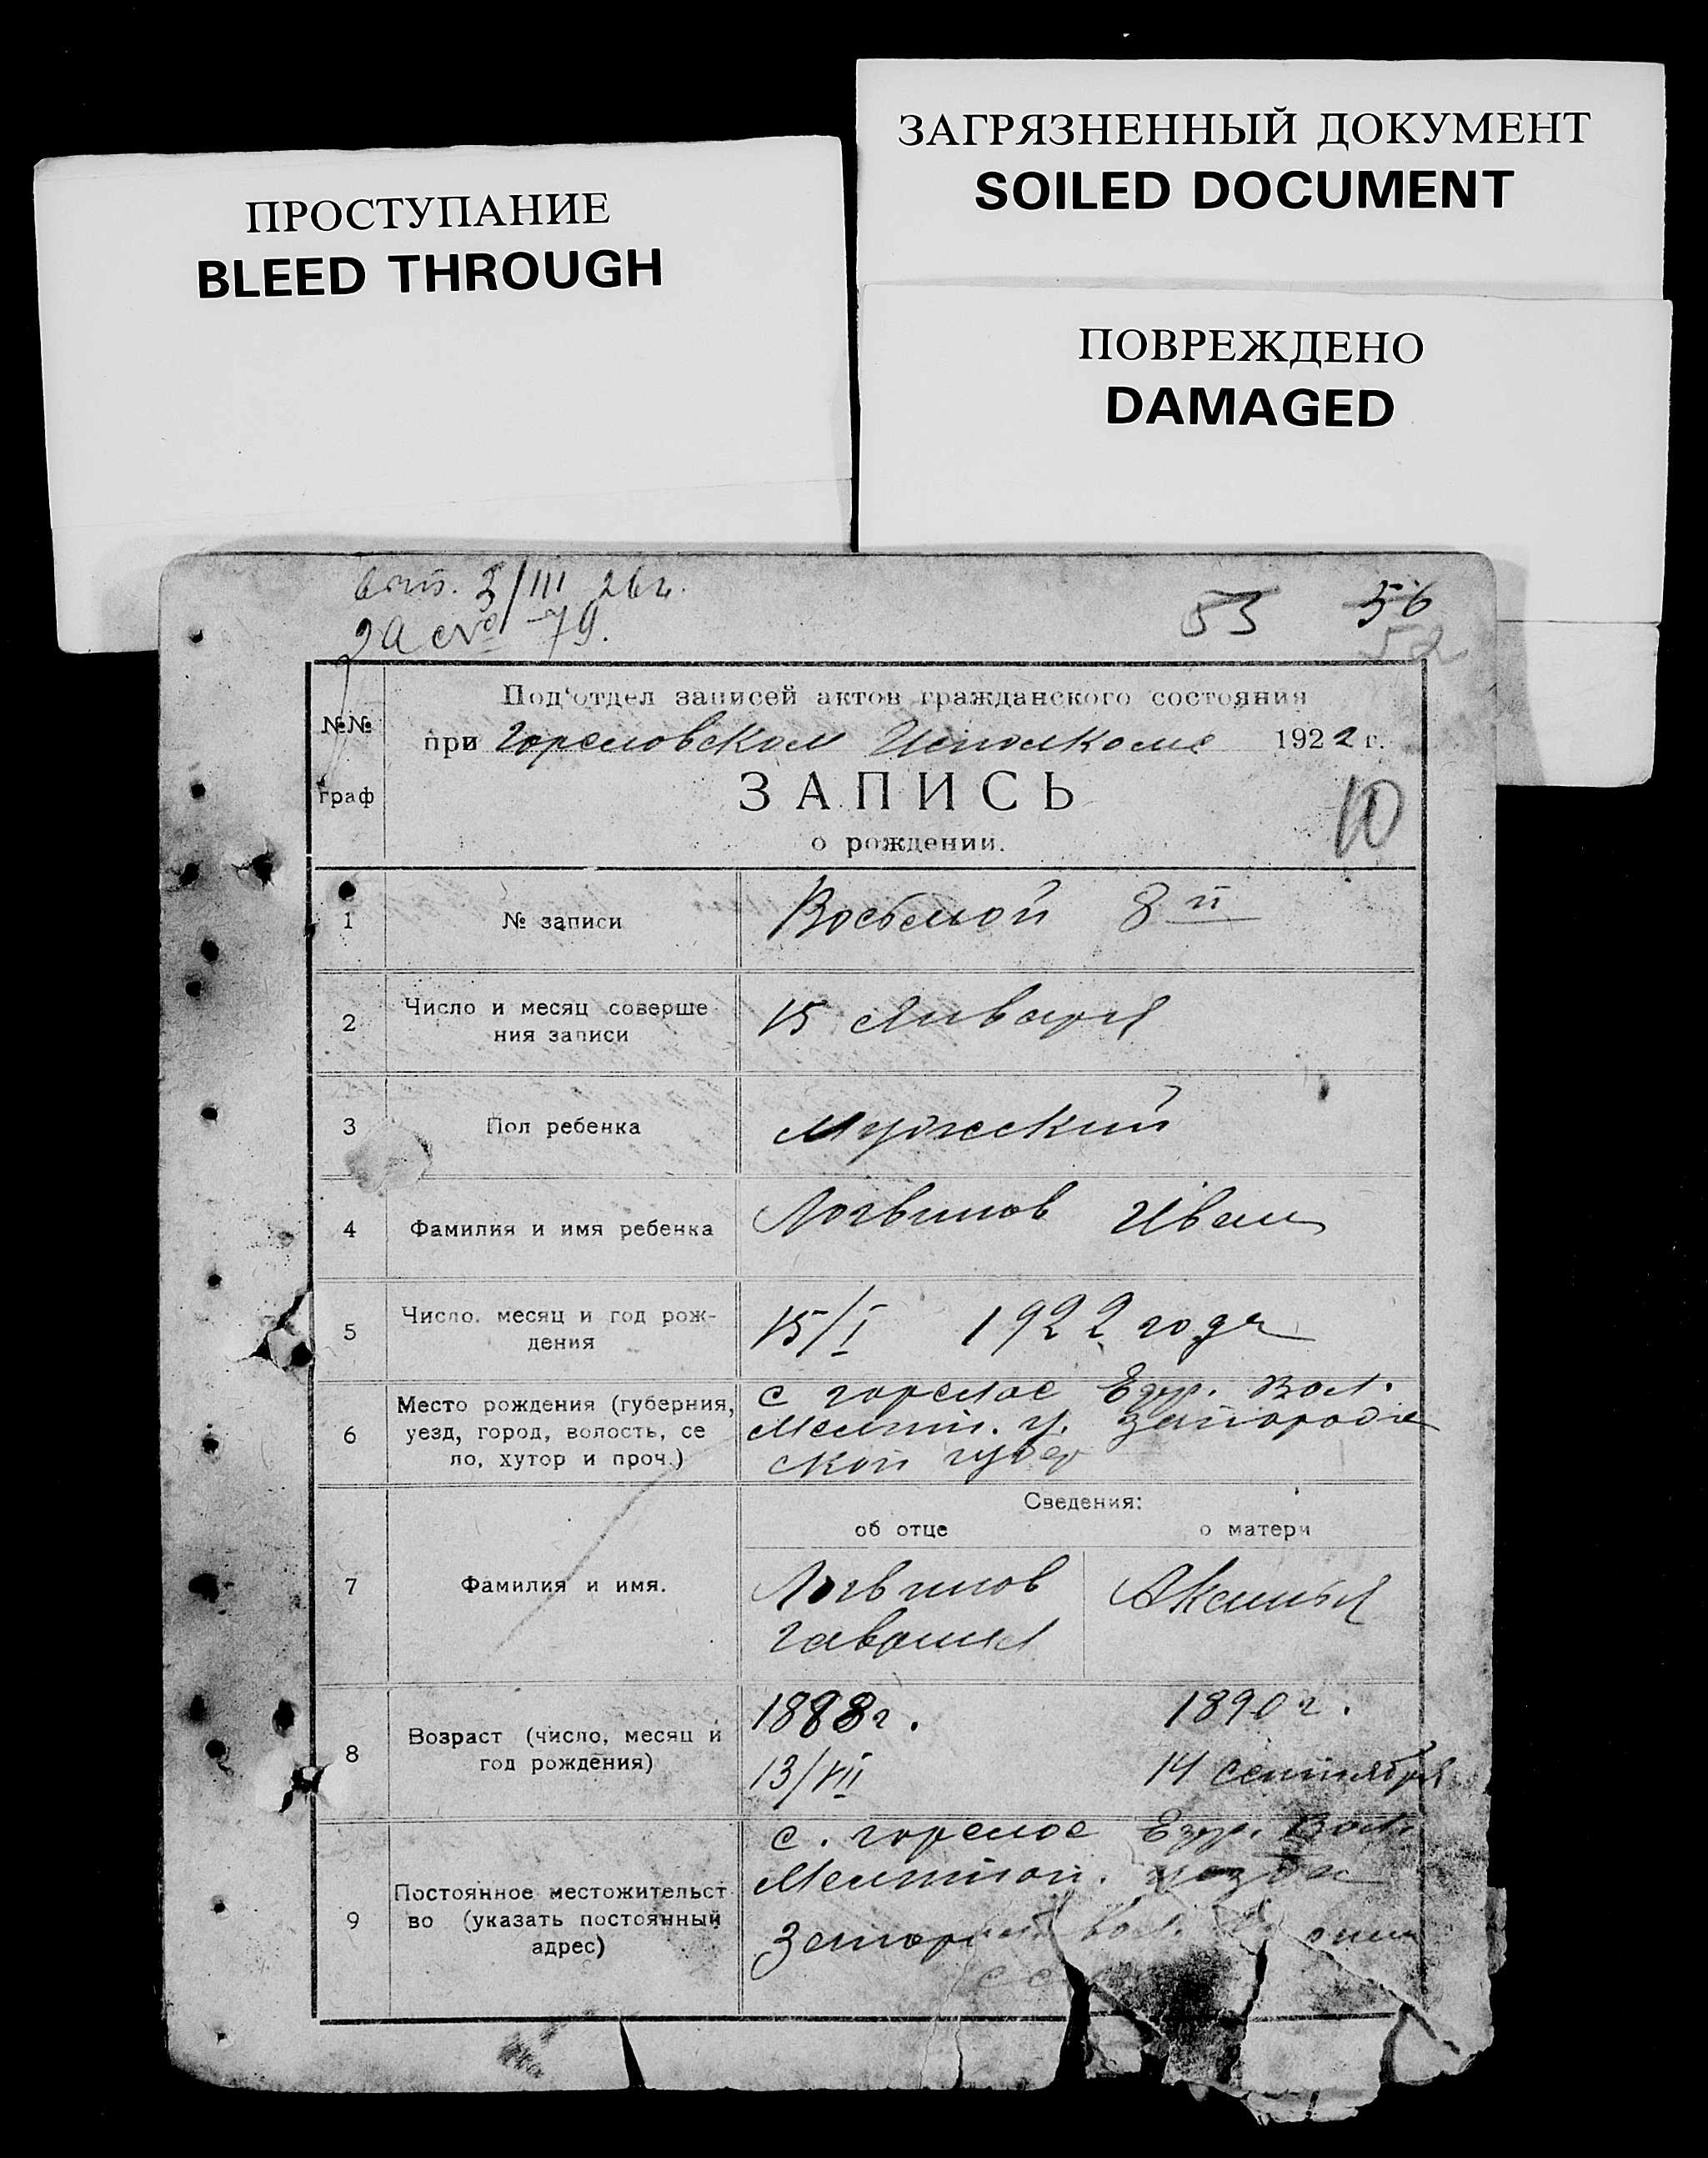 ЗАГРЯЗНЕННЫЙ ДОКУМЕНТ
SOILED DOCUMENT
ПРОСТУПАНИЕ
BLEED THROUGH
ПОВРЕЖДЕНО
DAMAGED
3/III 26 г.
за № 79.
53 56
52
№№
граф
Под'отдел записей актов гражданского состояния
при Гореловском Исполкоме 1922 г.
ЗАПИСЬ
10
о рождении.
1 № записи Восьмой 8 й
2 Число и месяц соверше
ния записи 15 Января
3 Пол ребенка Мужский
4 Фамилия и имя ребенка Логвинов Иван
5 Число, месяц и год рож-
дения 15/I 1922 года
6 Место рождения (губерния,
уезд, город, волость, се
ло, хутор и проч.)
с горелое Езур. Вол.
Мелит. у. Запорож
ской губер
Сведения:
об отце о матери
7 Фамилия и имя.
Логвинов
гавриил
Аксинья
8 Возраст (число, месяц и
год рождения)
1888 г. 1890 г.
13/VII 14 сентября
9 Постоянное местожительст
во (указать постоянный
адрес)
с. горелое Езур. Вол.
Мелитоп. уезда